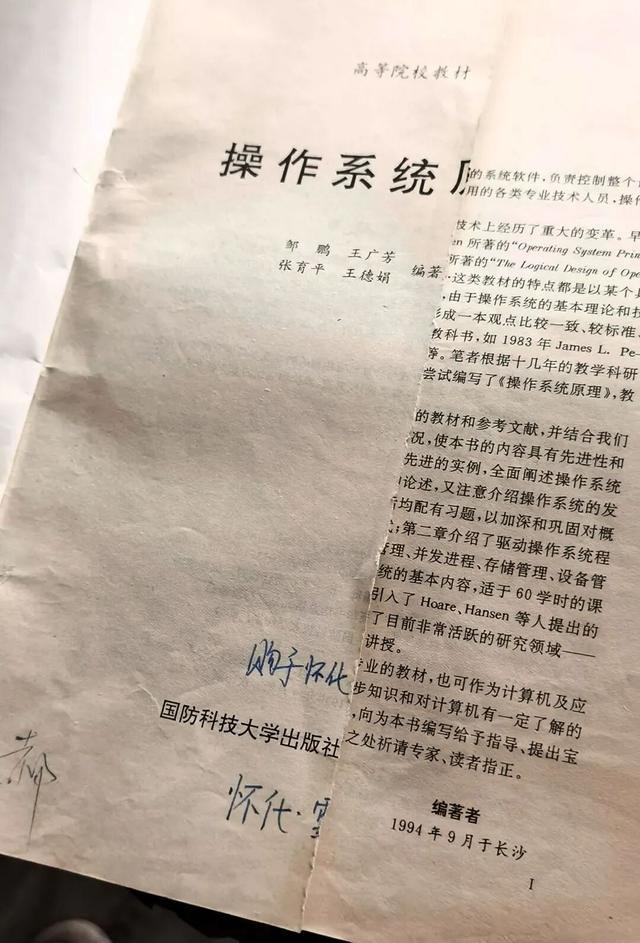 高等院校教材
操作系统
邹 鹏 王广芳
张育平 王德娟 编著
购于怀化
国防科技大学出版社
怀化·
的系统软件,负责控制整个
用的各类专业技术人员,操作
技术上经历了重大的变革。早
en 所著的“Operating System Prin
所著的“The Logical Design of Ope
,这类教材的特点都是以某个具
,由于操作系统的基本理论和技
形成一本观点比较一致、较标准、
教科书,如 1983 年 James L. Pe-
等。笔者根据十几年的教学科研
尝试编写了《操作系统原理》,教
的教材和参考文献,并结合我们
况,使本书的内容具有先进性和
先进的实例,全面阐述操作系统
论述,又注意介绍操作系统的发
均配有习题,以加深和巩固对概
;第二章介绍了驱动操作系统程
管理、并发进程、存储管理、设备管
统的基本内容,适于 60 学时的课
引入了 Hoare、Hansen 等人提出的
了目前非常活跃的研究领域——
讲授。
业的教材,也可作为计算机及应
步知识和对计算机有一定了解的
,向为本书编写给予指导、提出宝
之处祈请专家、读者指正。
编著者
1994 年 9 月于长沙
I